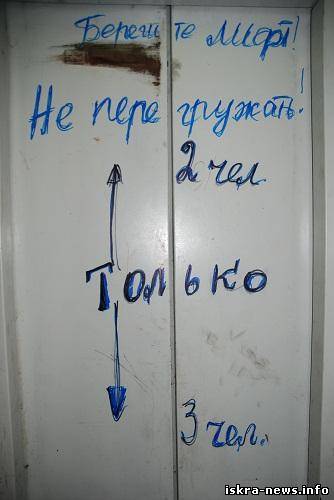 Берегите лифт!
Не перегружать!
2 чел.
Только
3 чел.
iskra-news.info